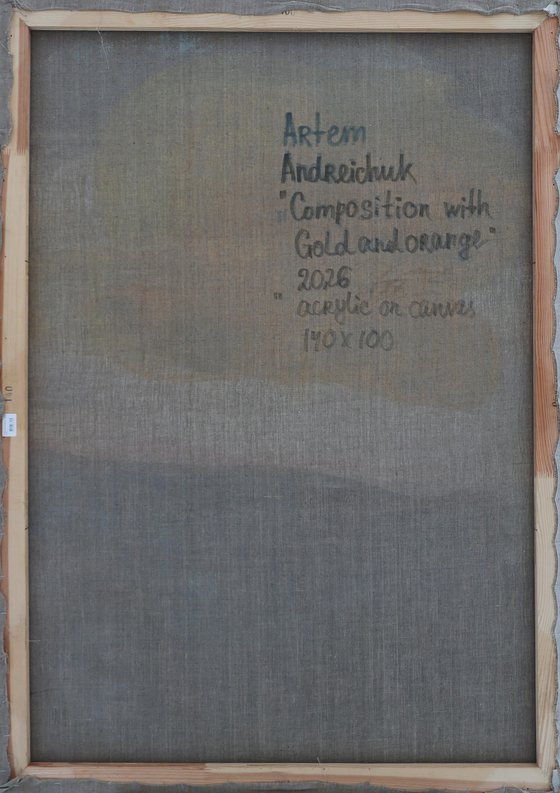 Artem
Andreichuk
"Composition with
Gold and orange"
2026
" acrylic on canvas
140x100